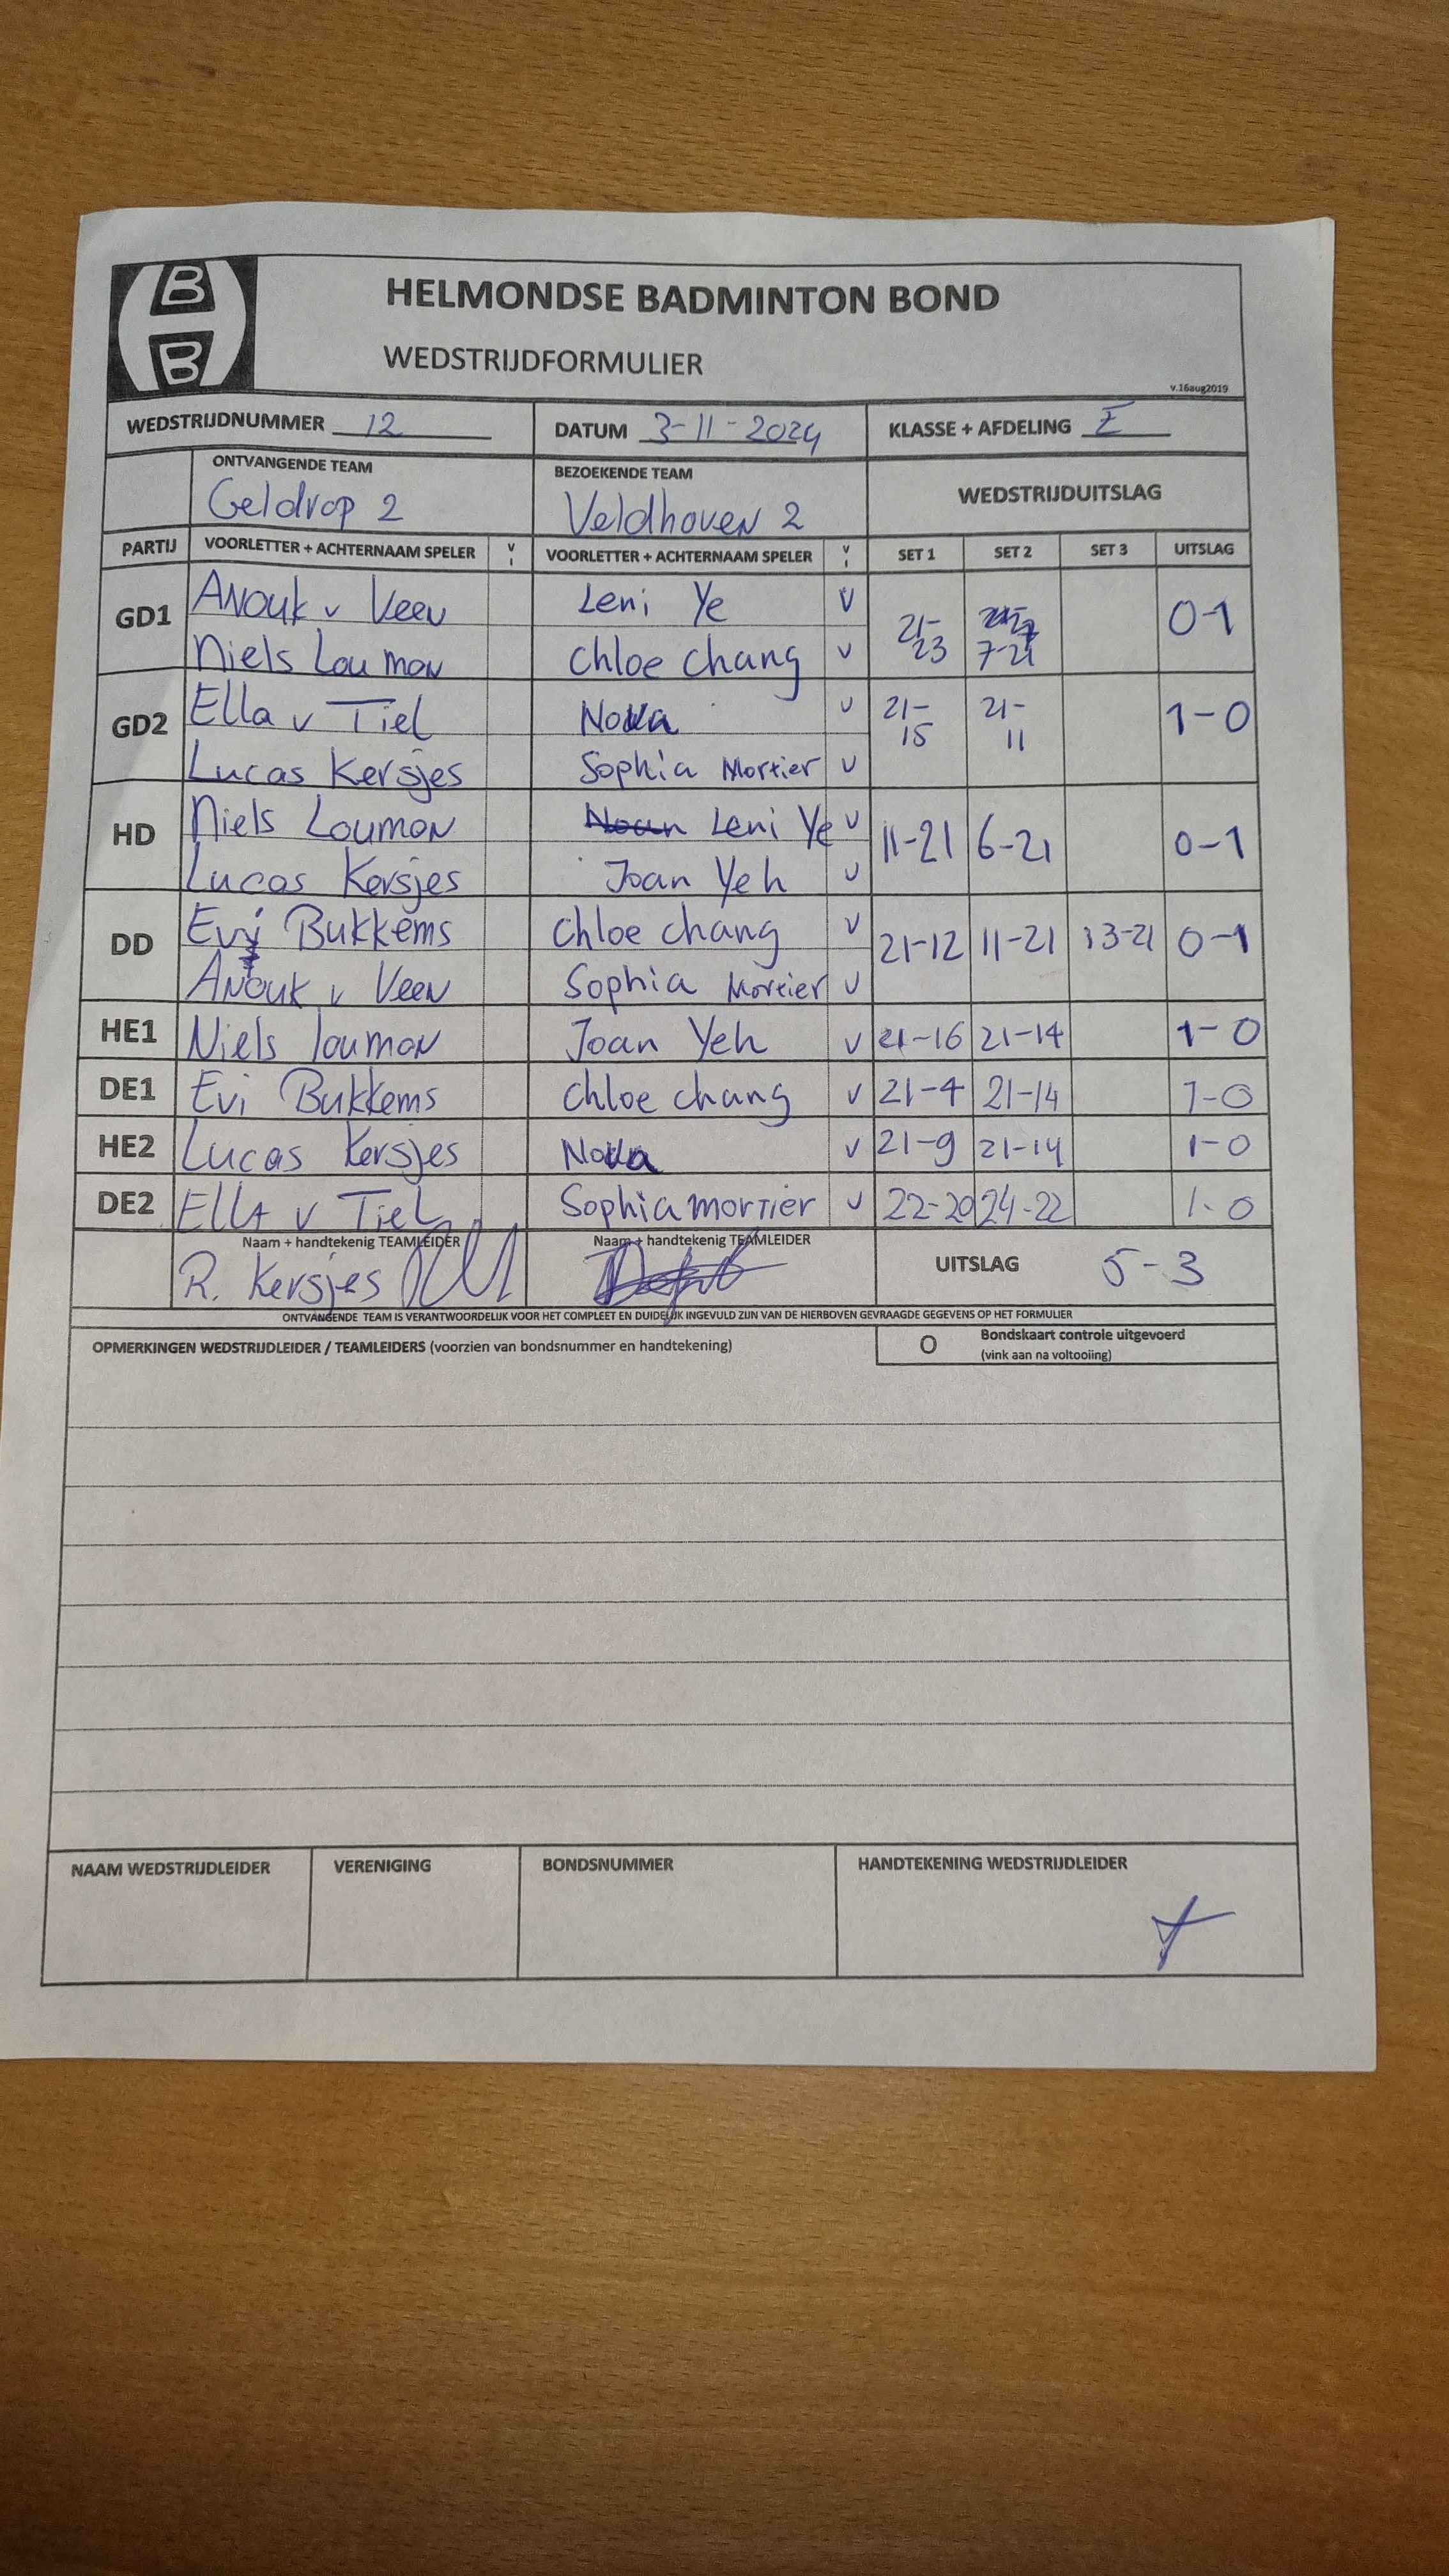 B
B
HELMONDSE BADMINTON BOND
WEDSTRIJDFORMULIER
v.16aug2019
WEDSTRIJDNUMMER 12 DATUM 3-11-2024 KLASSE + AFDELING E
ONTVANGENDE TEAM BEZOEKENDE TEAM WEDSTRIJDUITSLAG
Geldrop 2 Veldhoven 2
PARTIJ VOORLETTER + ACHTERNAAM SPELER V VOORLETTER + ACHTERNAAM SPELER V SET 1 SET 2 SET 3 UITSLAG
GD1 Anouk v Veen Leni Ye V 21-23 7-21 0-1
Niels Loumon Chloe Chang V
GD2 Ella v Tiel Nova V 21-15 21-11 1-0
Lucas Kersjes Sophia Mortier V
HD Niels Loumon Leni Ye V 11-21 6-21 0-1
Lucas Kersjes Joan Yeh V
DD Evi Bukkems Chloe Chang V 21-12 11-21 13-21 0-1
Anouk v Veen Sophia Mortier V
HE1 Niels Loumon Joan Yeh V 21-16 21-14 1-0
DE1 Evi Bukkems Chloe Chang V 21-4 21-14 1-0
HE2 Lucas Kersjes Nova V 21-9 21-14 1-0
DE2 Ella v Tiel Sophia Mortier V 22-20 24-22 1-0
Naam + handtekenig TEAMLEIDER Naam + handtekenig TEAMLEIDER UITSLAG 5-3
R. Kersjes
ONTVANGENDE TEAM IS VERANTWOORDELIJK VOOR HET COMPLEET EN DUIDELIJK INGEVULD ZIJN VAN DE HIERBOVEN GEVRAAGDE GEGEVENS OP HET FORMULIER
OPMERKINGEN WEDSTRIJDLEIDER / TEAMLEIDERS (voorzien van bondsnummer en handtekening) O Bondskaart controle uitgevoerd
(vink aan na voltooiing)
NAAM WEDSTRIJDLEIDER VERENIGING BONDSNUMMER HANDTEKENING WEDSTRIJDLEIDER